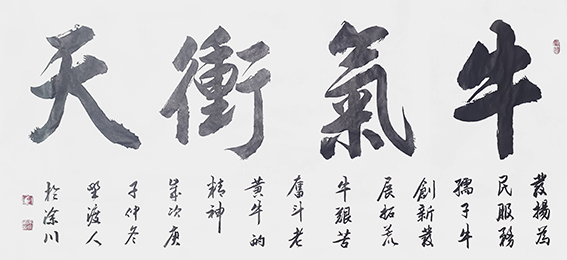 牛氣衝天
發揚為
民服務
孺子牛
創新發
展拓荒
牛艱苦
奮斗老
黄牛的
精神
歲次庚
子仲冬
渡人
於川